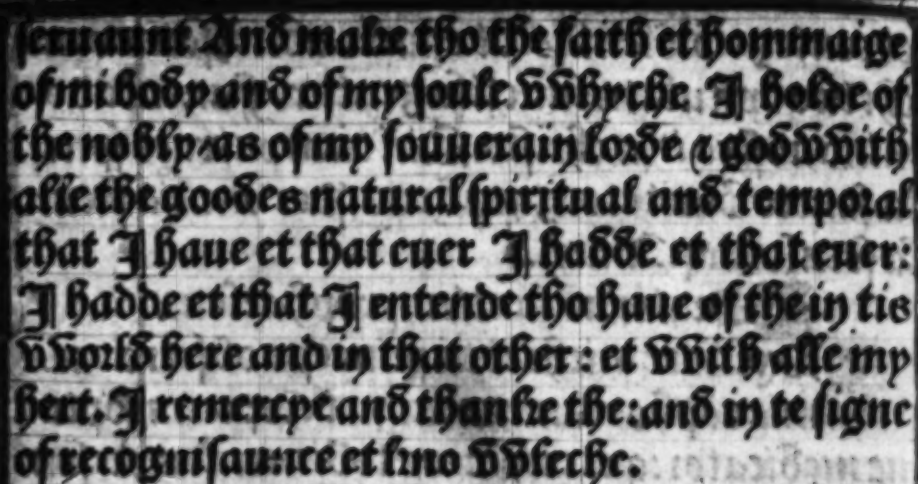 ſeruaunt And make tho the faith et hommaige
of mi body and of my ſoule vvhyche I holde of
the nobly/as of my ſouuerain lorde ⁊ god vvith
alle the goodes natural ſpiritual and temporal
that I haue et that euer I hadde et that euer:
I hadde et that I entende tho haue of the in tis
vvorld here and in that other: et vvith alle my
hert. I remercye and thanke the: and in te ſigne
of recogniſaunce et kno vvleche.